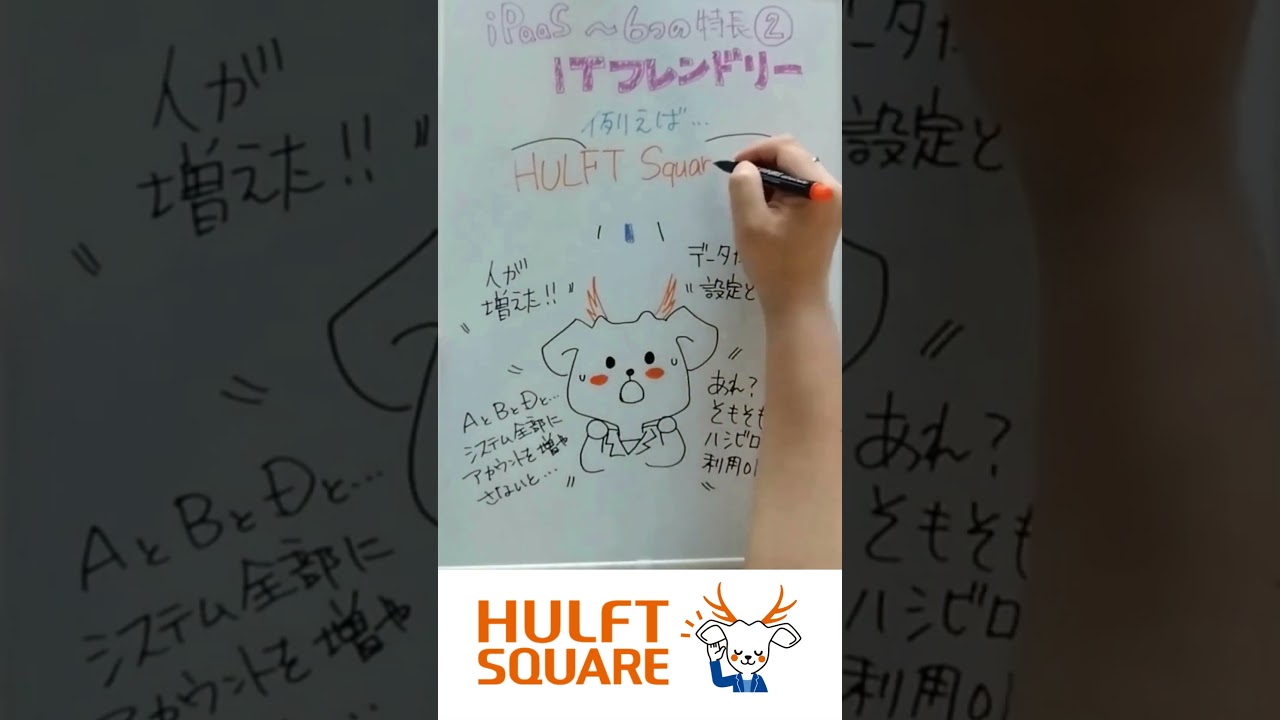 iPaaS ~6つの特長②
ITフレンドリー
例えば...
HULFT Squar
人が
増えた!!
データ
設定と
AとBとDと...
システム全部に
アカウントを増や
さないと...
あれ?
そもそも
ハシビロ
利用
HULFT
SQUARE